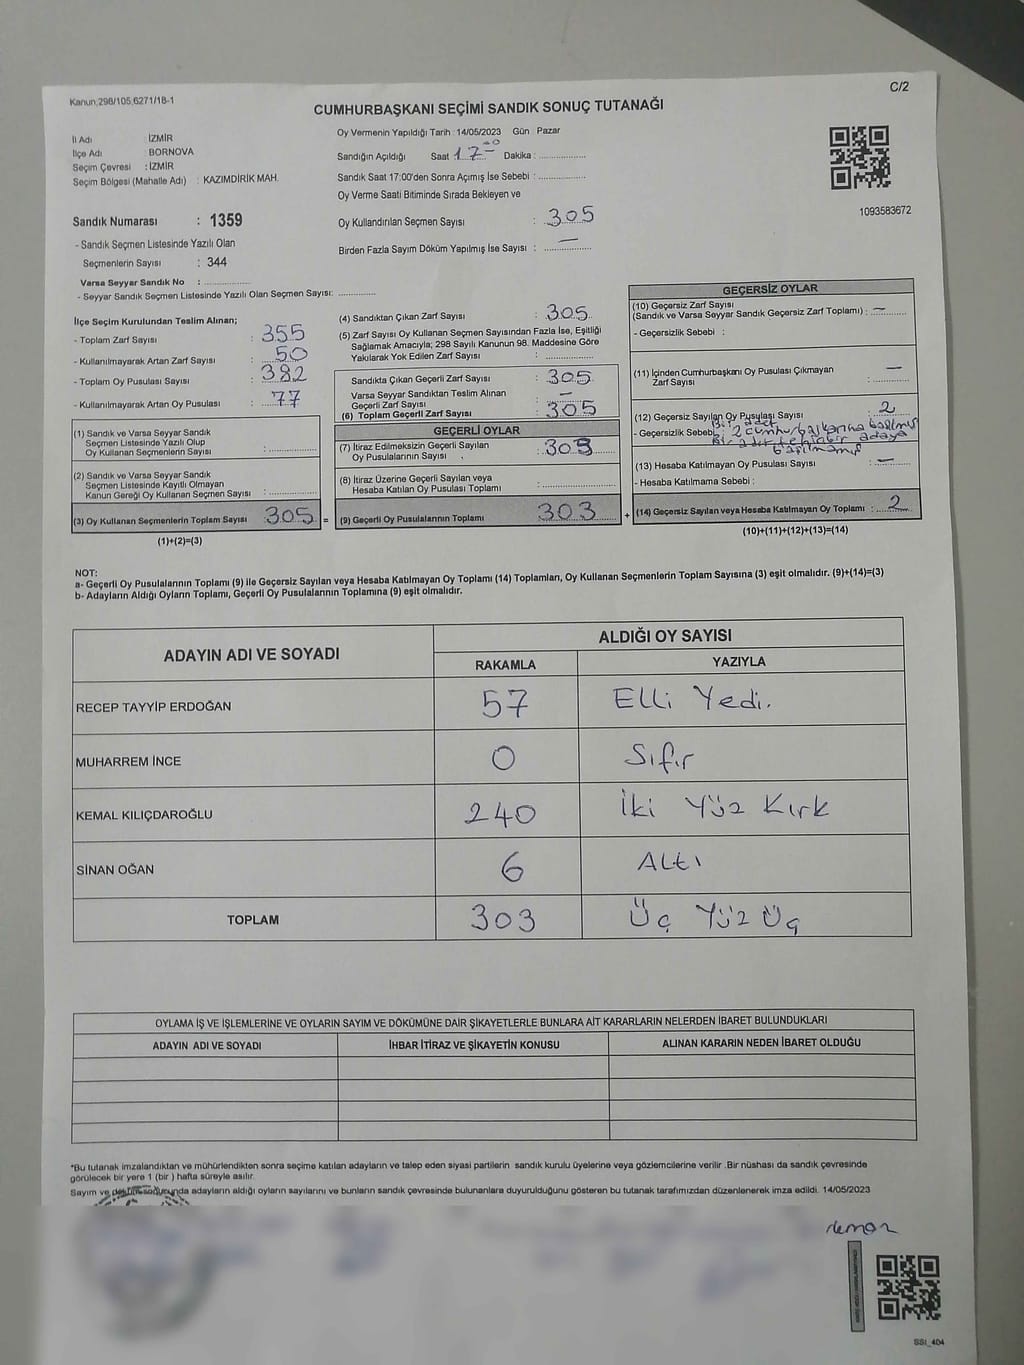 Kanun,298/105,6271/18-1
C/2
CUMHURBAŞKANI SEÇİMİ SANDIK SONUÇ TUTANAĞI
İl Adı : İZMİR
İlçe Adı : BORNOVA
Seçim Çevresi : İZMİR
Seçim Bölgesi (Mahalle Adı) : KAZIMDİRİK MAH.
Sandık Numarası : 1359
- Sandık Seçmen Listesinde Yazılı Olan
Seçmenlerin Sayısı : 344
Varsa Seyyar Sandık No : ...............
- Seyyar Sandık Seçmen Listesinde Yazılı Olan Seçmen Sayısı: .............
Oy Vermenin Yapıldığı Tarih : 14/05/2023 Gün Pazar
Sandığın Açıldığı Saat 17 00 Dakika : ................
Sandık Saat 17:00'den Sonra Açımış İse Sebebi : ................
Oy Verme Saati Bitiminde Sırada Bekleyen ve
Oy Kullandırılan Seçmen Sayısı : 305
Birden Fazla Sayım Döküm Yapılmış İse Sayısı : —
1093583672
İlçe Seçim Kurulundan Teslim Alınan;
- Toplam Zarf Sayısı : 355
- Kullanılmayarak Artan Zarf Sayısı : 50
- Toplam Oy Pusulası Sayısı : 382
- Kullanılmayarak Artan Oy Pusulası : 77
(1) Sandık ve Varsa Seyyar Sandık
Seçmen Listesinde Yazılı Olup
Oy Kullanan Seçmenlerin Sayısı : ................
(2) Sandık ve Varsa Seyyar Sandık
Seçmen Listesinde Kayıtlı Olmayan
Kanun Gereği Oy Kullanan Seçmen Sayısı : ................
(3) Oy Kullanan Seçmenlerin Toplam Sayısı : 305 =
(1)+(2)=(3)
(4) Sandıktan Çıkan Zarf Sayısı : 305
(5) Zarf Sayısı Oy Kullanan Seçmen Sayısından Fazla İse, Eşitliği
Sağlamak Amacıyla; 298 Sayılı Kanunun 98. Maddesine Göre
Yakılarak Yok Edilen Zarf Sayısı : ................
Sandıkta Çıkan Geçerli Zarf Sayısı : 305
Varsa Seyyar Sandıktan Teslim Alınan
Geçerli Zarf Sayısı : —
(6) Toplam Geçerli Zarf Sayısı : 305
GEÇERLİ OYLAR
(7) İtiraz Edilmeksizin Geçerli Sayılan
Oy Pusulalarının Sayısı : 303
(8) İtiraz Üzerine Geçerli Sayılan veya
Hesaba Katılan Oy Pusulası Toplamı : ................
(9) Geçerli Oy Pusulalarının Toplamı : 303 +
GEÇERSİZ OYLAR
(10) Geçersiz Zarf Sayısı
(Sandık ve Varsa Seyyar Sandık Geçersiz Zarf Toplamı) : —
- Geçersizlik Sebebi :
(11) İçinden Cumhurbaşkanı Oy Pusulası Çıkmayan
Zarf Sayısı : —
(12) Geçersiz Sayılan Oy Pusulası Sayısı : 2
Bir adet
- Geçersizlik Sebebi : 2 cumhurbaşkanına basılmış
Bir adet hehicbir adaya
basılmamış
(13) Hesaba Katılmayan Oy Pusulası Sayısı : —
- Hesaba Katılmama Sebebi :
(14) Geçersiz Sayılan veya Hesaba Katılmayan Oy Toplamı : 2
(10)+(11)+(12)+(13)=(14)
NOT:
a- Geçerli Oy Pusulalarının Toplamı (9) ile Geçersiz Sayılan veya Hesaba Katılmayan Oy Toplamı (14) Toplamları, Oy Kullanan Seçmenlerin Toplam Sayısına (3) eşit olmalıdır. (9)+(14)=(3)
b- Adayların Aldığı Oyların Toplamı, Geçerli Oy Pusulalarının Toplamına (9) eşit olmalıdır.
ADAYIN ADI VE SOYADI ALDIĞI OY SAYISI
RAKAMLA YAZIYLA
RECEP TAYYİP ERDOĞAN 57 Elli Yedi.
MUHARREM İNCE 0 Sıfır
KEMAL KILIÇDAROĞLU 240 İki Yüz Kırk
SİNAN OĞAN 6 Altı
TOPLAM 303 Üç Yüz Üç
OYLAMA İŞ VE İŞLEMLERİNE VE OYLARIN SAYIM VE DÖKÜMÜNE DAİR ŞİKAYETLERLE BUNLARA AİT KARARLARIN NELERDEN İBARET BULUNDUKLARI
ADAYIN ADI VE SOYADI İHBAR İTİRAZ VE ŞİKAYETİN KONUSU ALINAN KARARIN NEDEN İBARET OLDUĞU
*Bu tutanak imzalandıktan ve mühürlendikten sonra seçime katılan adayların ve talep eden siyasi partilerin sandık kurulu üyelerine veya gözlemcilerine verilir .Bir nüshası da sandık çevresinde
görülecek bir yere 1 (bir ) hafta süreyle asılır.
Sayım ve adayların aldığı oyların sayılarını ve bunların sandık çevresinde bulunanlara duyurulduğunu gösteren bu tutanak tarafımızdan düzenlenerek imza edildi. 14/05/2023
SSI_404